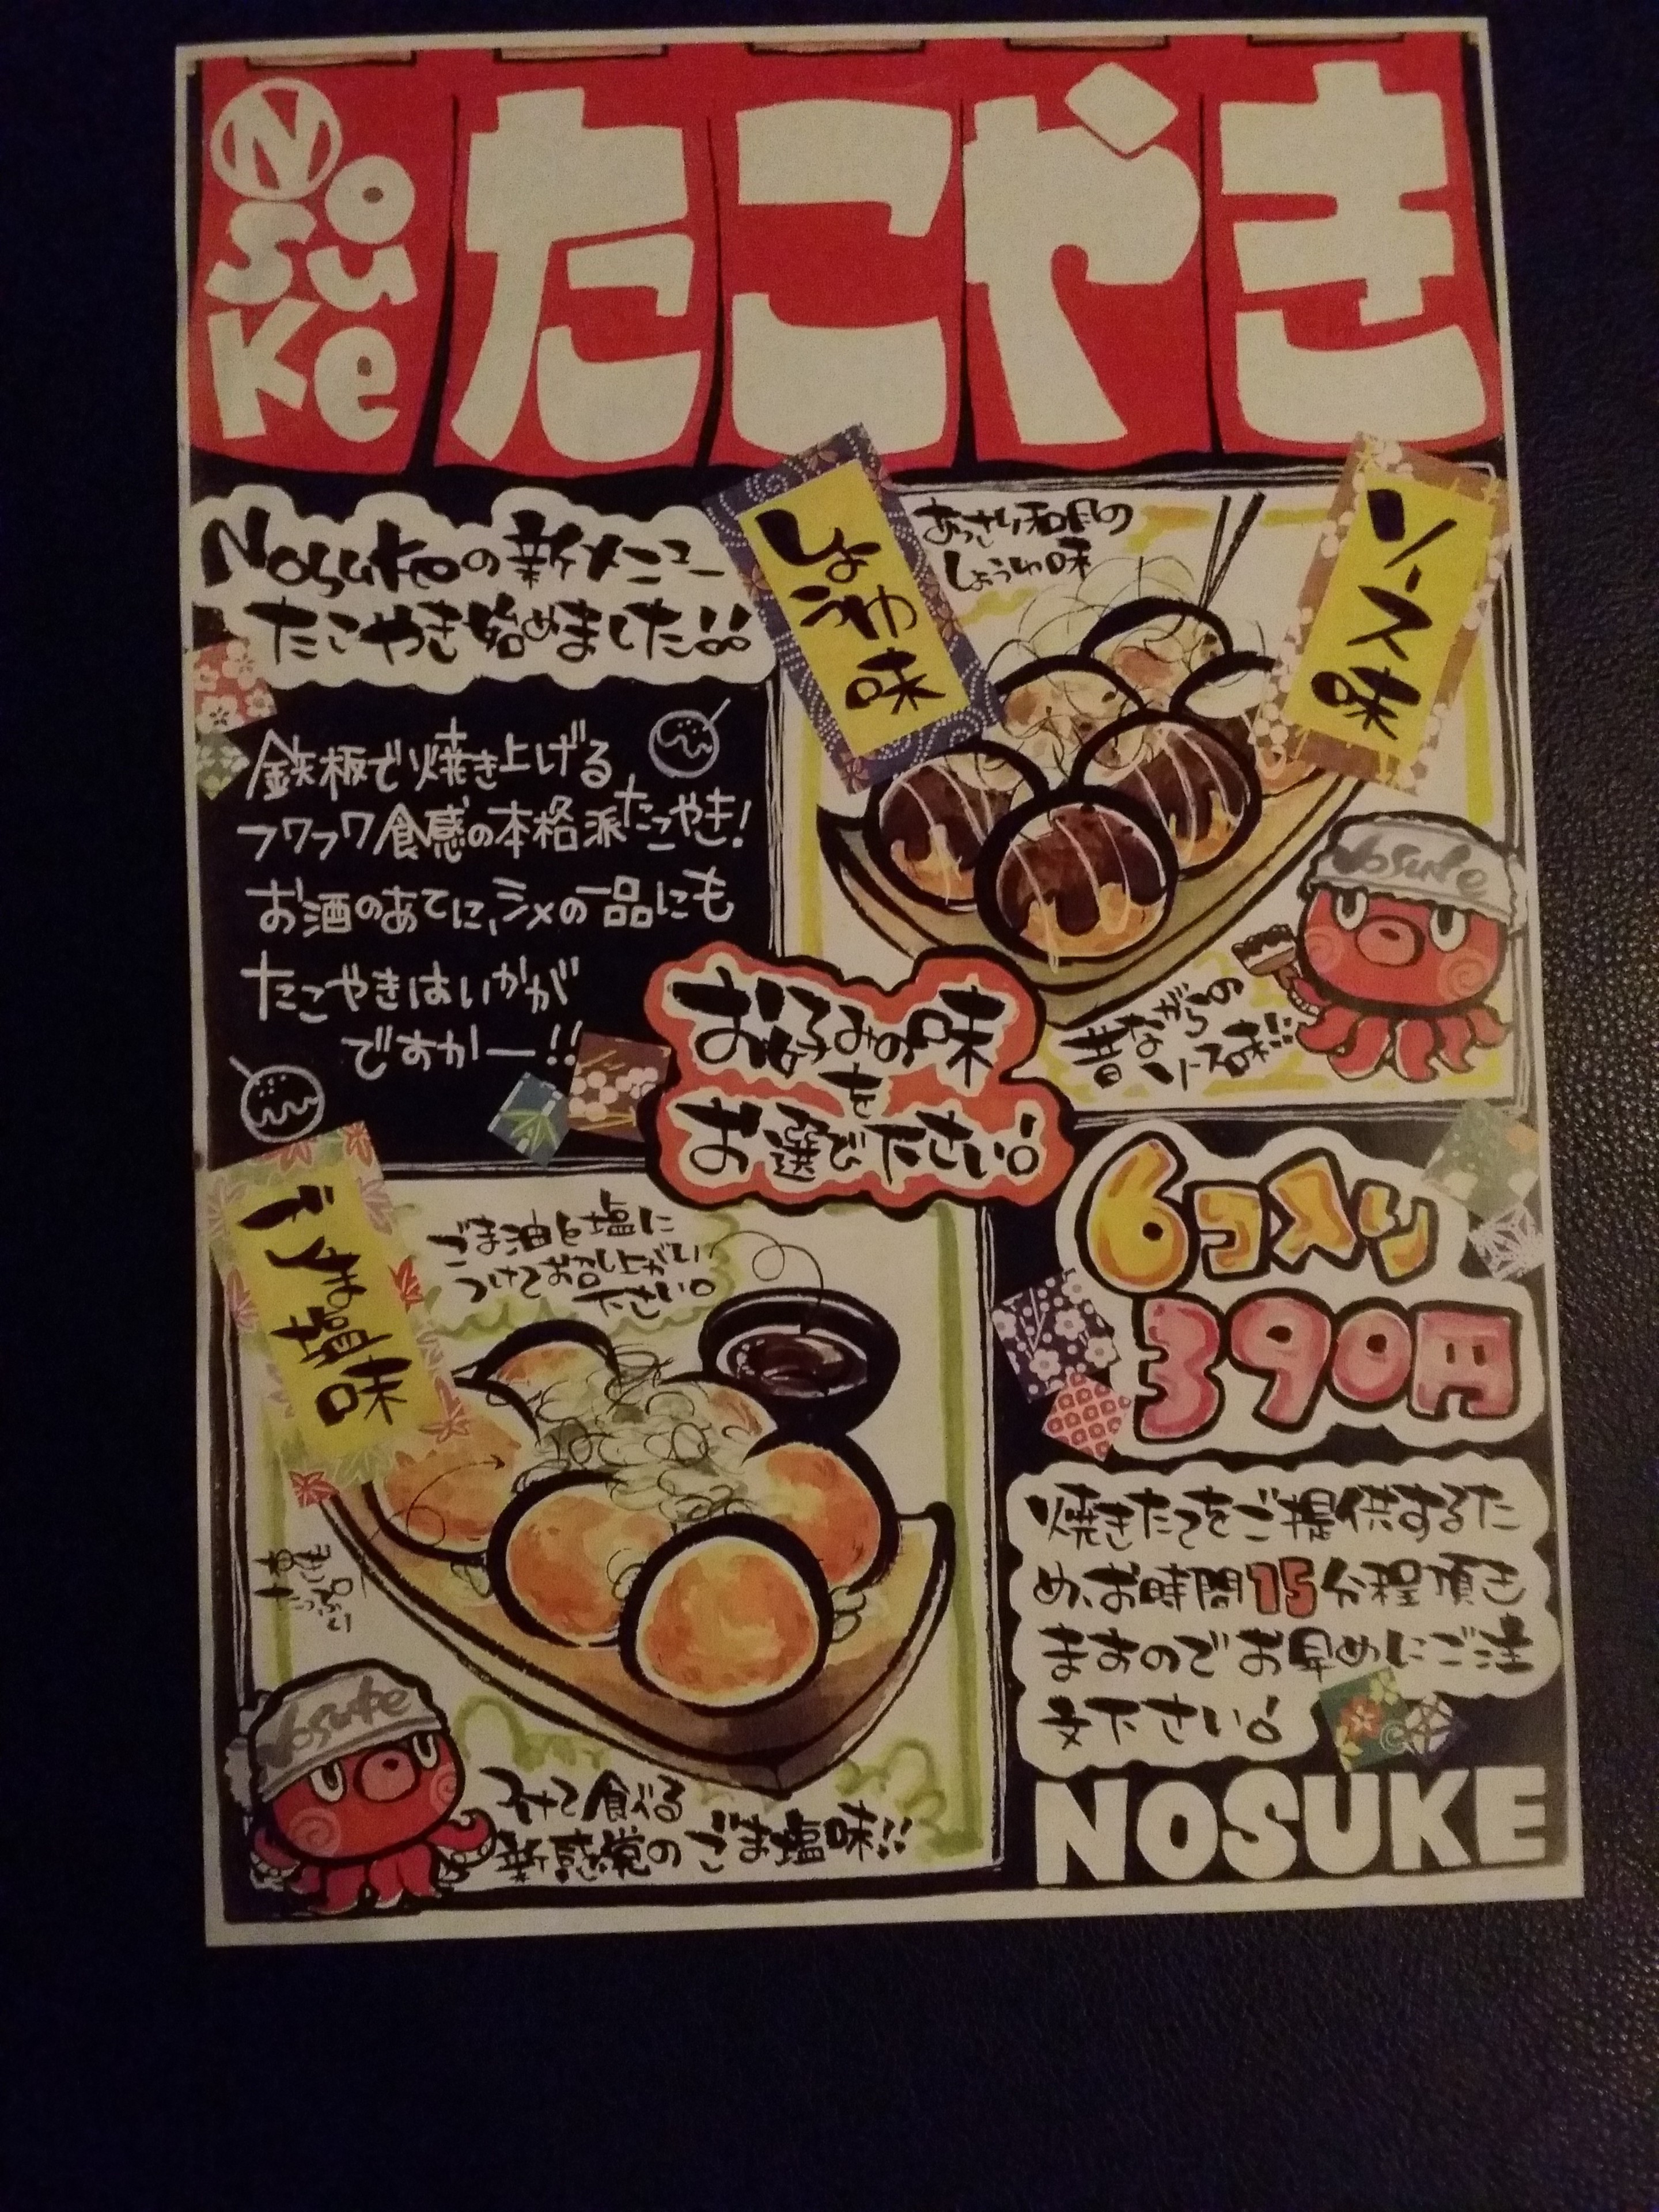 Nosuke
たこやき
Nosukeの新メニュー
たこやき始めました!!
鉄板で焼き上げる
フワフワ食感の本格派たこやき!
お酒のあてに、シメの一品にも
たこやきはいかが
ですかー!!
しょうゆ味
あっさり和風の
しょうゆ味
ソース味
Nosuke
昔ながらの
ソース味!!
お好みの味
を
お選び下さい!
ごま塩味
ごま油と塩に
つけてお召し上がり
下さい。
ねぎ
たっぷり
Nosuke
つけて食べる
新感覚のごま塩味!!
6コ入り
390円
焼きたてをご提供するた
め、お時間15分程頂き
ますのでお早めにご注
文下さい!
NOSUKE